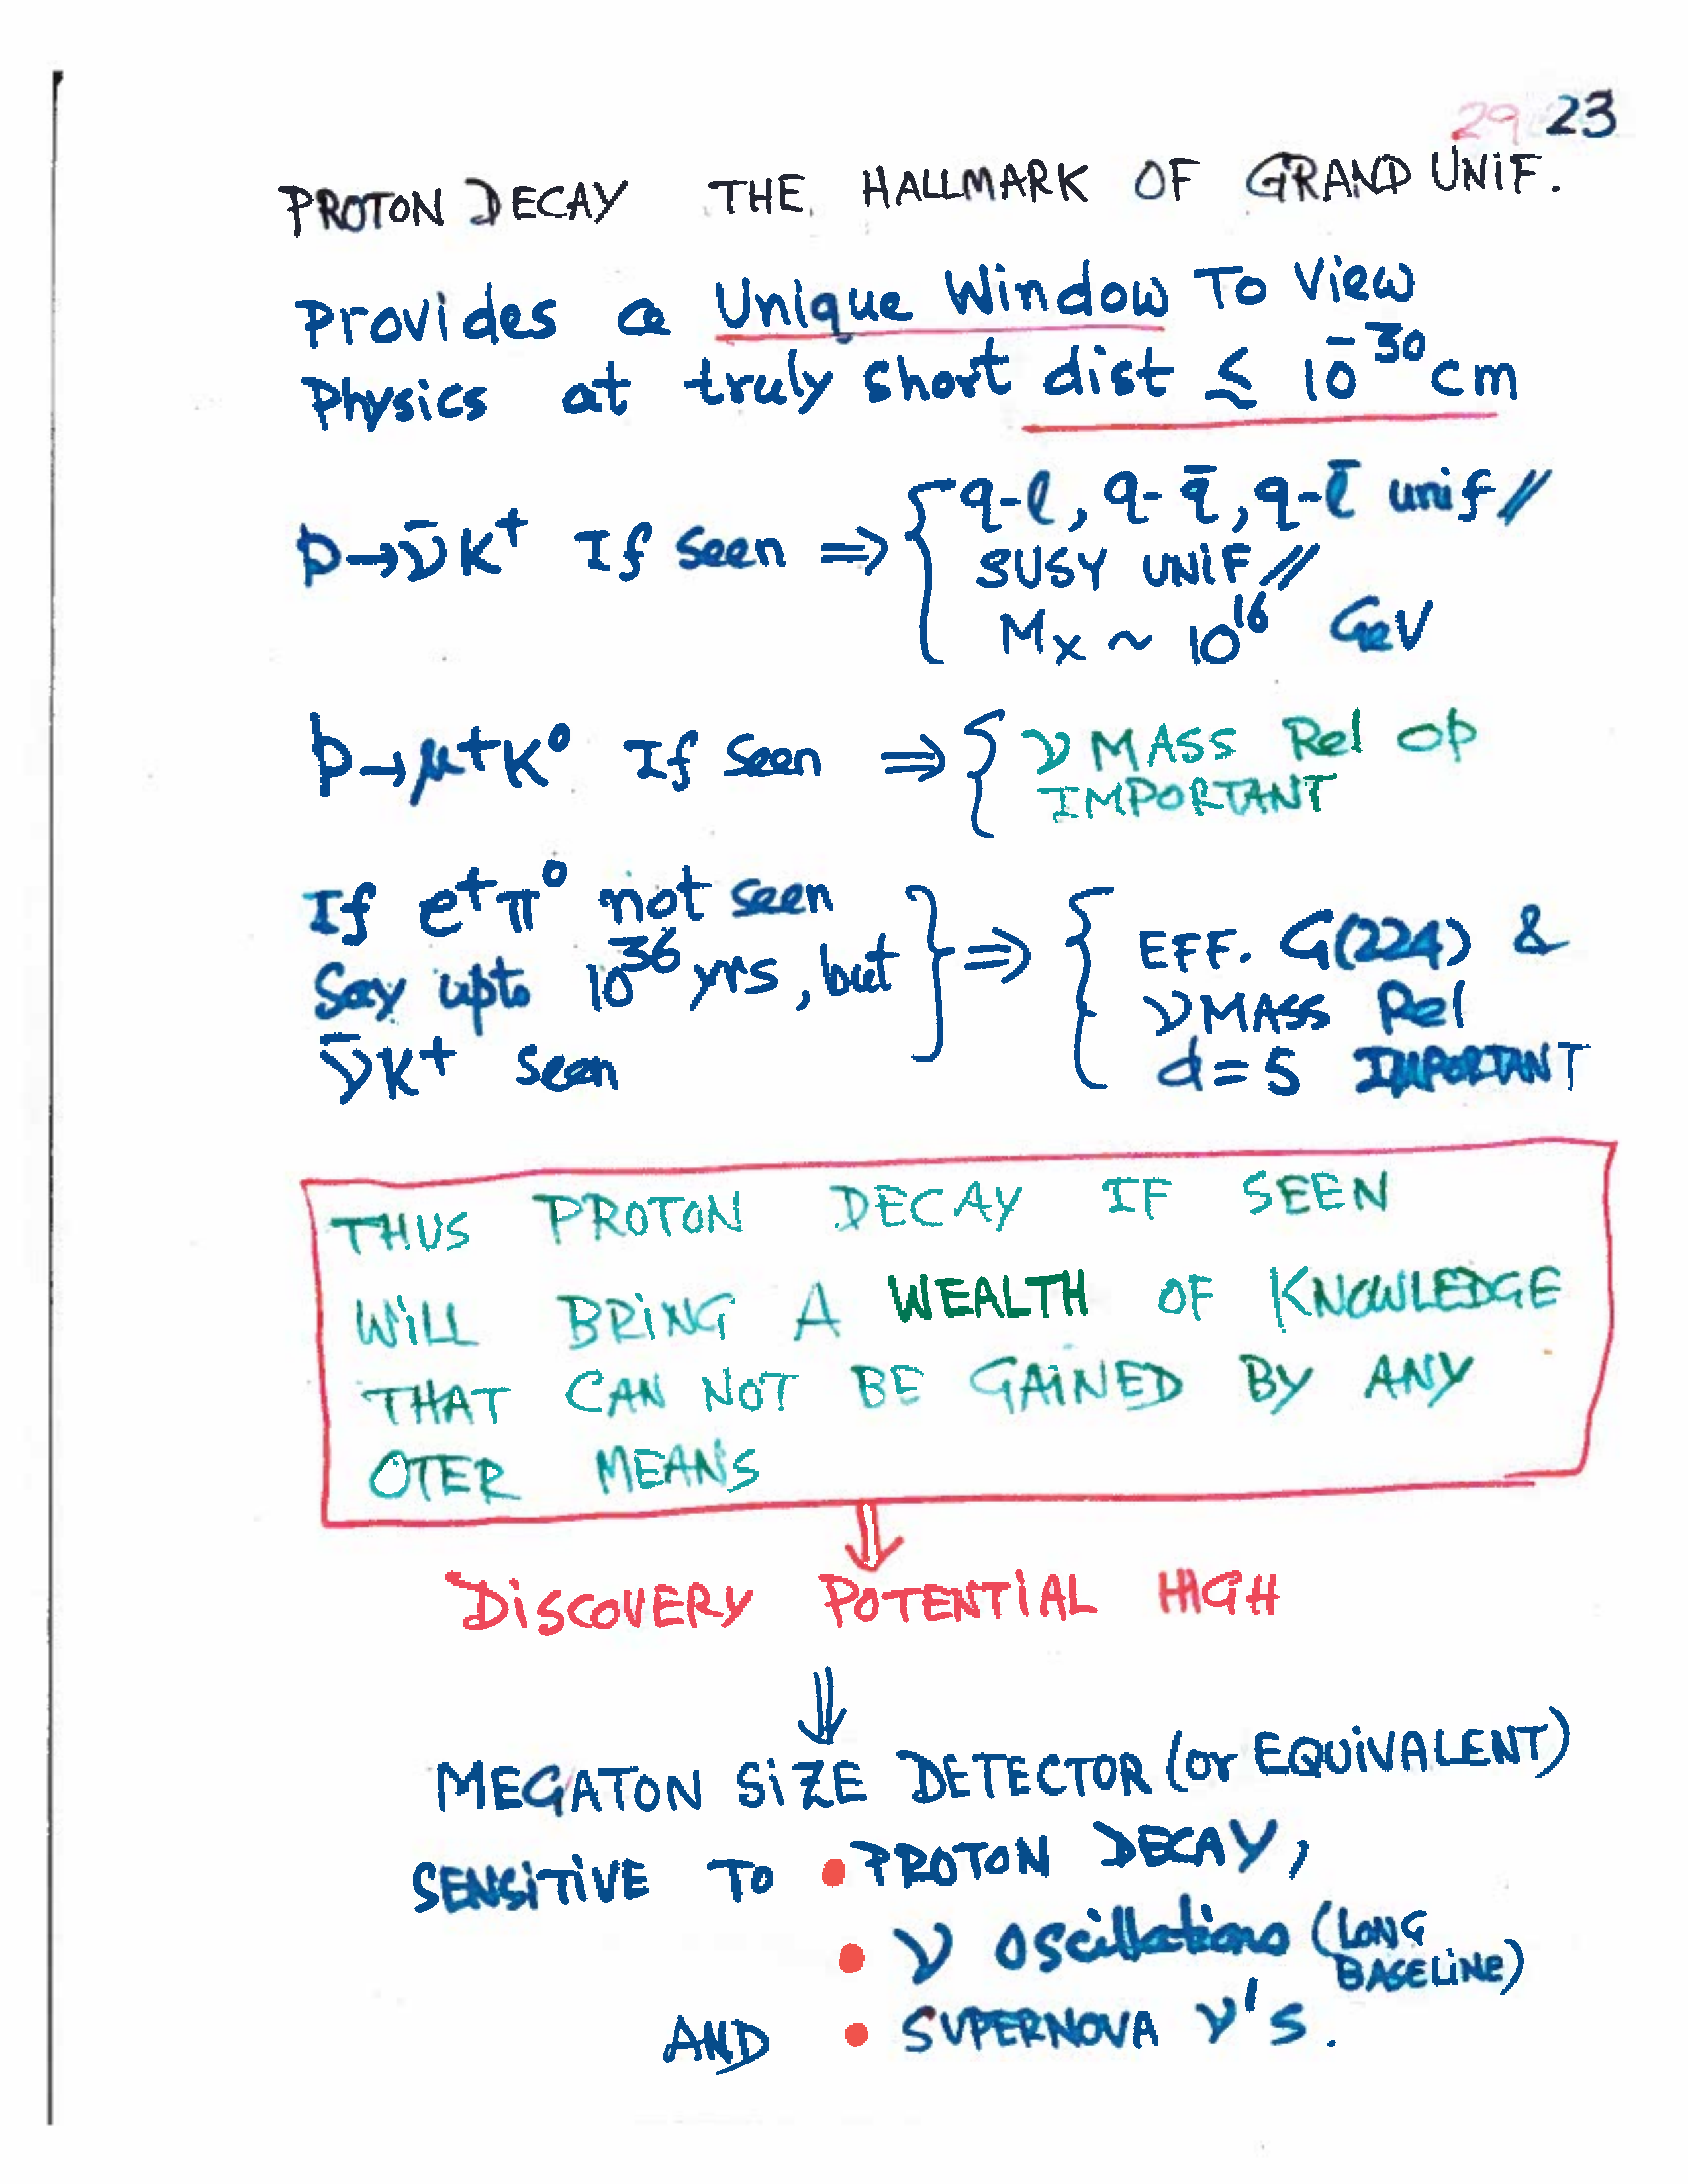 29 23
PROTON DECAY THE HALLMARK OF GRAND UNIF.
Provides a Unique Window To View
Physics at truly short dist ≲ 10⁻³⁰ cm
p→ν̄K⁺ If seen ⇒ { q-l, q-q̄, q-l̄ unif //
SUSY UNIF //
Mx ~ 10¹⁶ GeV
p→μ⁺K⁰ If seen ⇒ { ν MASS Rel op
IMPORTANT
If e⁺π⁰ not seen
Say upto 10³⁶ yrs, but } ⇒ { EFF. G(224) &
ν MASS Rel
ν̄K⁺ seen
d=5 IMPORTANT
THUS PROTON DECAY IF SEEN
WILL BRING A WEALTH OF KNOWLEDGE
THAT CAN NOT BE GAINED BY ANY
OTER MEANS
⇓
DISCOVERY POTENTIAL HIGH
⇓
MEGATON SIZE DETECTOR (or EQUIVALENT)
SENSITIVE TO • PROTON DECAY,
• ν oscillations (LONG
BASELINE)
AND • SUPERNOVA ν's.